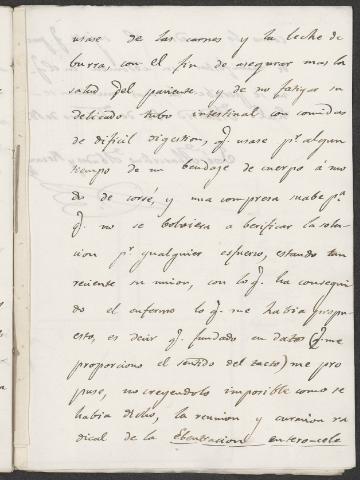 usase de las carnes y la leche de
burra, con el fin de asegurar mas la
salud del paciente, y de no fatigar su
delicado tubo intestinal con comidas
de dificil digestion, q. usase pr. algun
tiempo de un bendage de cuerpo á mo
do de corsé, y una compresa suabe pa.
q. no se bolbiera a berificar la solu-
cion pr. qualquier esfuerzo, estando tan
reciente su union, con lo q. ha consegui
do el enfermo lo q. me habia propu-
esto, es decir q. fundado en datos (q. me
proporciono el sentido del tacto) me pro
puse, no creyendolo imposible como se
habia dicho, la reunion y curacion ra
dical de la Ebentracion enteroncele